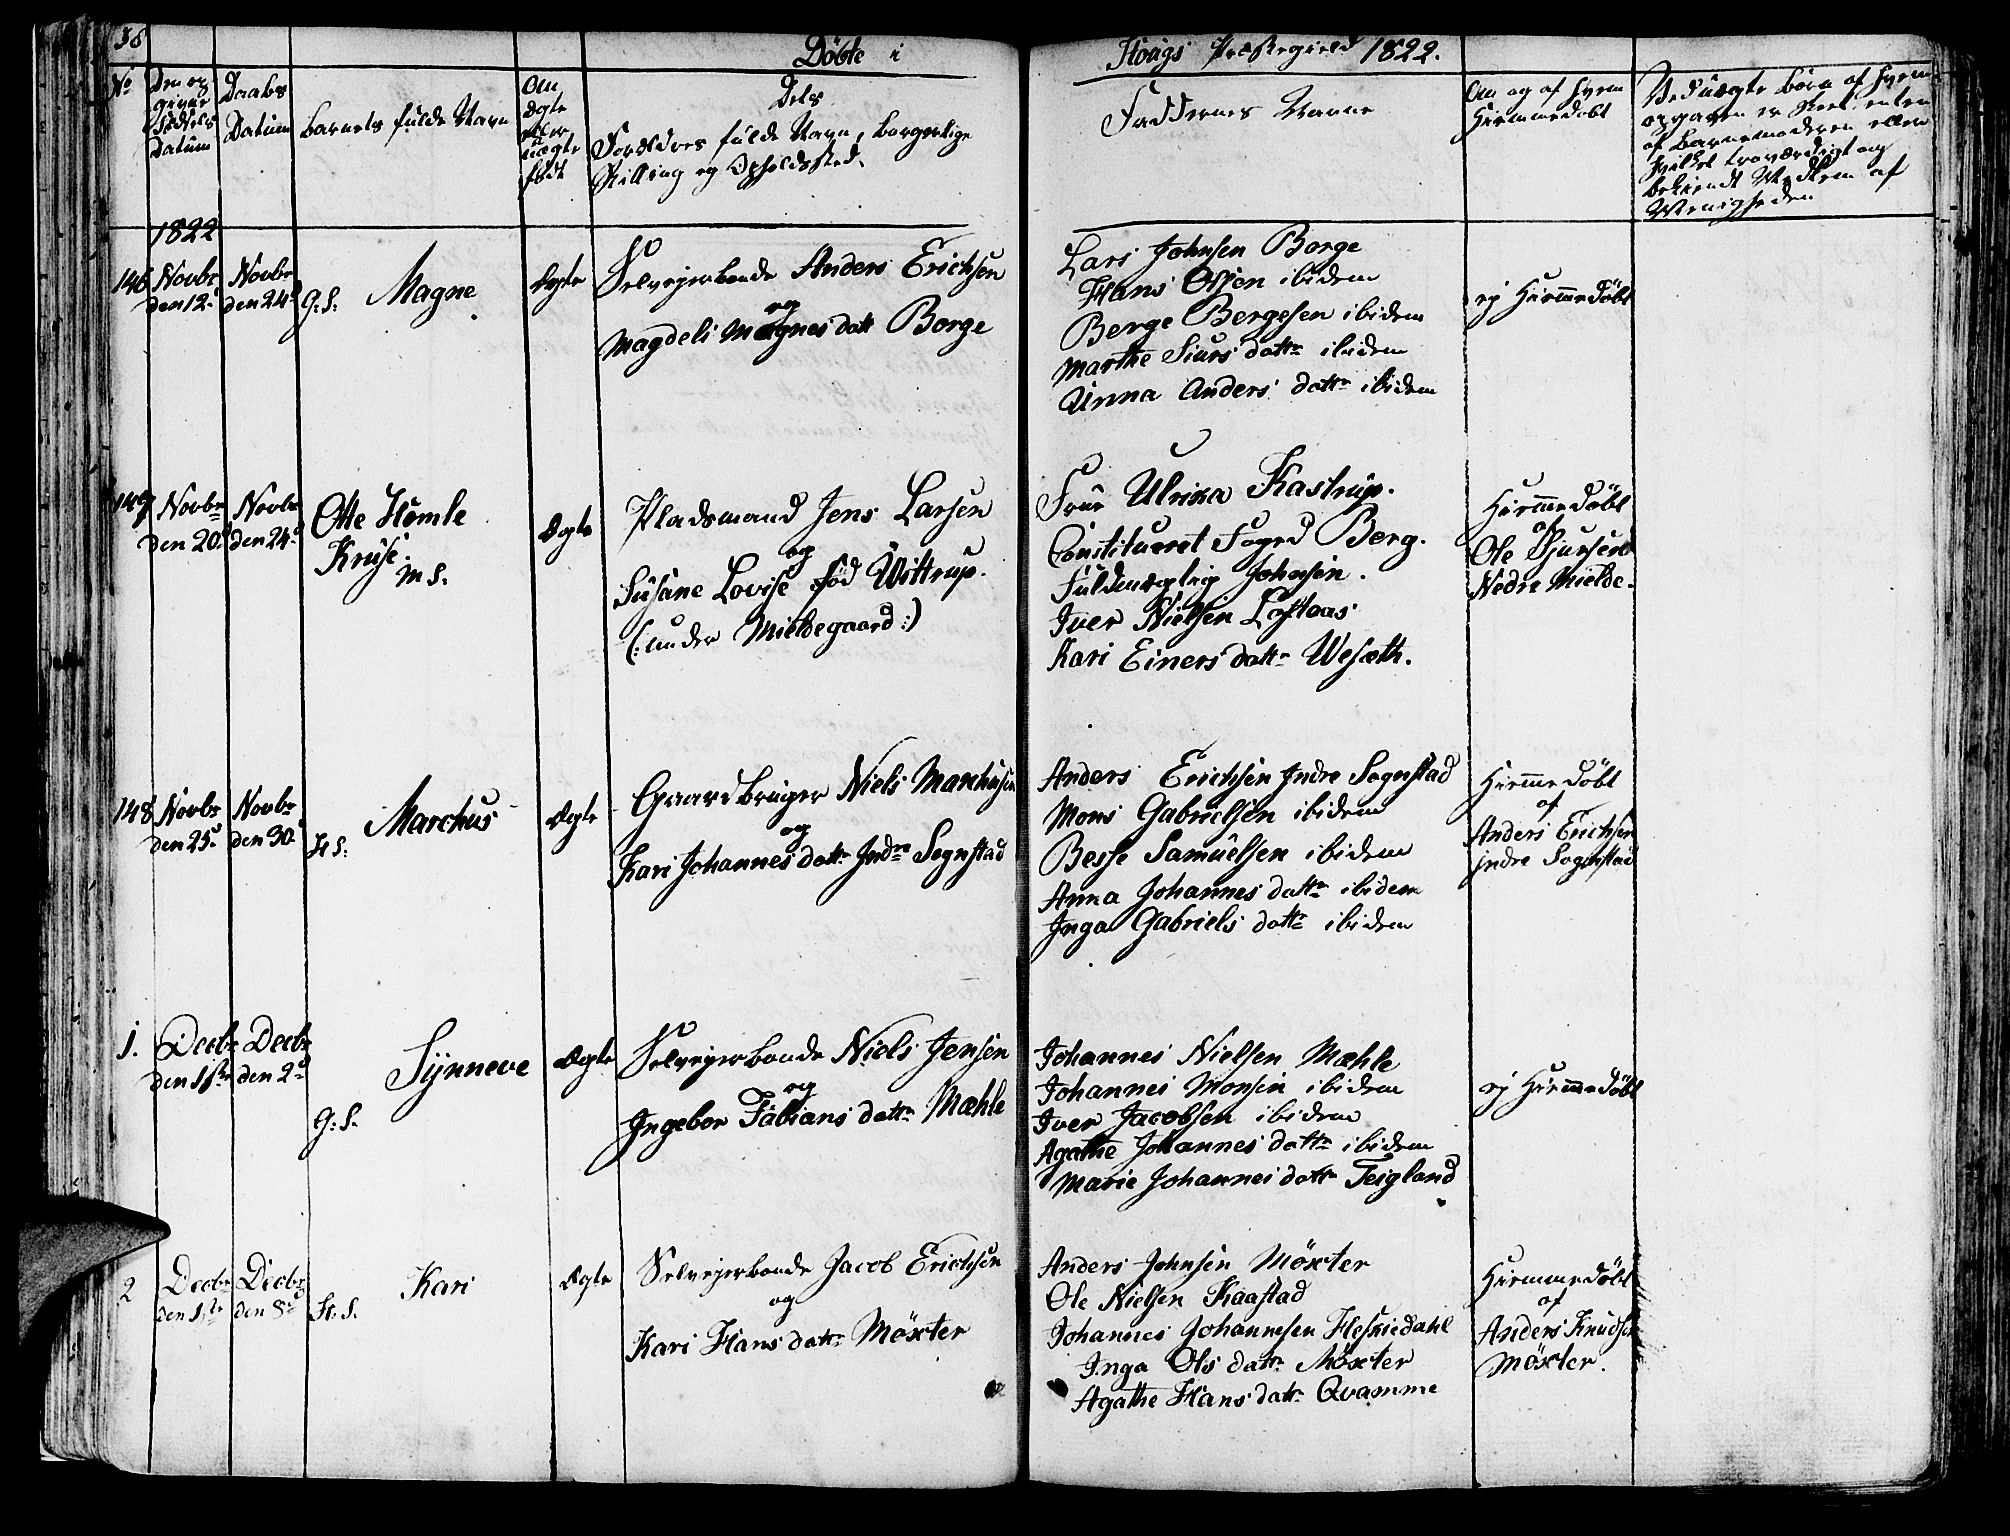 38
Döbte i Hougs Præstegield 1822.
No
Den op
givne
Fødsels
Datum
Daabs
Datum
Barnets fulde Navn
Om
Ægte
eller
uægte
født
Dets
Forældres fulde Navn, borgerlige
Stilling og Opholdssted.
Faddernes Navne
Om og af hvem
Hiemmedöbt
Ved uægte Börn af hvem
opgaven er skeet enten
af Barnemoderen eller
hvilket troværdigt og
bekiendt Medlem af
Menigheden
1822
146
Novbr
den 12.
Novbr
den 24d
G: S:
Magne
Ægte
Selveyerbonde Anders Erichsen
og
Magdeli Magnes datt Borge
Lars Johnsen Borge
Hans Olsen ibidem
Berge Bergesen ibidem
Marthe Siurs dattr ibidem
Anna Anders dattr ibidem
ej Hiemmedöbt
147
Novbr
den 20d
Novbr
den 24d
Otte Homle
Kruse.
M S.
Ægte
Pladsmand Jens Larsen
og
Susane Lovise fød Wittrup.
(: under Mieldegaard :)
Frue Ulrika Kastrup.
Constitueret Foged Berg.
Fuldmægtig Johnsen.
Iver Nielsen Loftaas
Kari Einers dattr Wesæth.
Hiemmedöbt
af
Ole Sjursen
Nedre Mielde.
148
Novbr
den 25d
Novbr
den 30.
H S:
Marchus
Ægte
Gaardbruger Niels Marchusen
og
Kari Johannes dattr Indre Sognstad
Anders Erichsen Indre Sognstad
Mons Gabrielsen ibidem
Besse Samuelsen ibidem
Anna Johannes dattr ibidem
Inga Gabriels dattr ibidem
Hiemmedöbt
af
Anders Erichsen
Indre Sognstad
1.
Decbr
den 1ste
Decbr
den 2d
G: S.
Synneve
Ægte
Selveyerbonde Niels Jensen
og
Ingebor Fabians dattr Mæhle
Johannes Nielsen Mæhle
Johannes Monsen ibidem
Iver Jacobsen ibidem
Agathe Johannes dattr ibidem
Marie Johannes dattr Teigland
ej Hiemmedöbt
2
Decbr
den 1ste
Decbr
den 8d
H. S.
Kari
Ægte
Selveyerbonde Jacob Erichsen
og
Kari Hans dattr Möxter
Anders Johnsen Möxter
Ole Nielsen Kaastad
Johannes Johannesen Fleskiedahl
Inga Ols dattr Möxter
Agathe Hans dattr Qvamme
Hiemmedöbt
af
Anders Knudsen
Möxter.